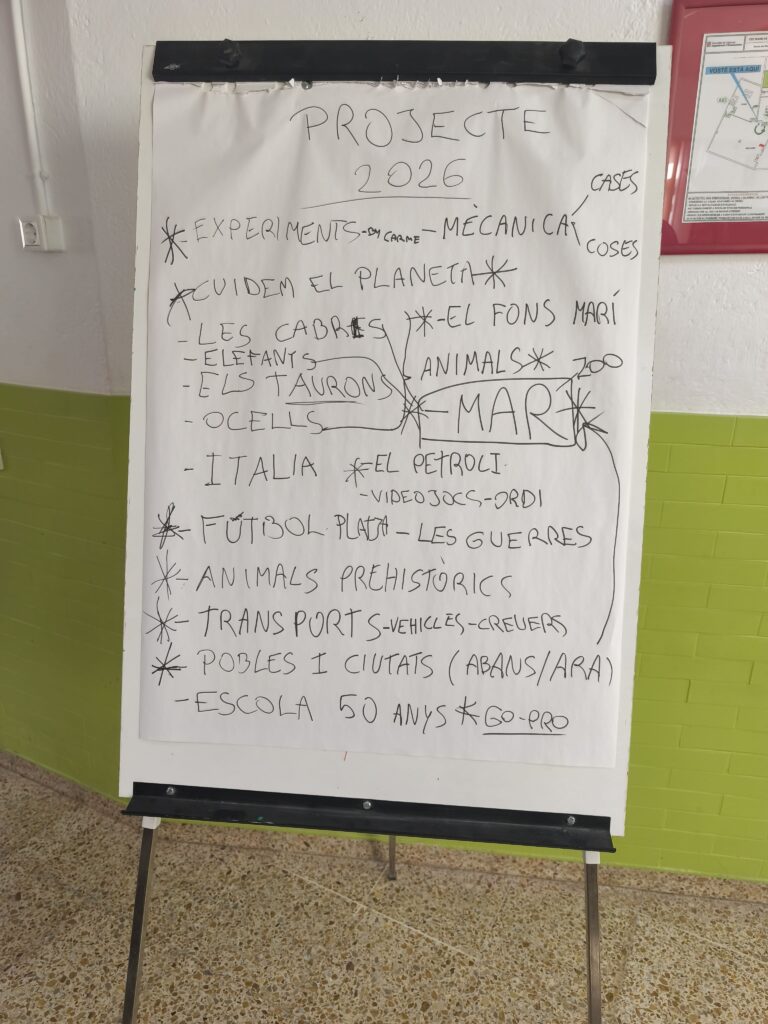 PROJECTE
2026
CASES
* EXPERIMENTS - BY CARME - MÈCANICA
COSES
* CUIDEM EL PLANETA *
- LES CABRES * - EL FONS MARÍ
- ELEFANTS ANIMALS * ZOO
- ELS TAURONS * - MAR *
- OCELLS
- ITALIA * - EL PETROLI.
- VIDEOJOCS - ORDI
* - FÚTBOL PLATJA - LES GUERRES
* - ANIMALS PREHISTÒRICS
* - TRANSPORTS - VEHICLES - CREUERS
* - POBLES I CIUTATS (ABANS/ARA)
- ESCOLA 50 ANYS * GO-PRO
VOSTÈ ESTÀ AQUÍ